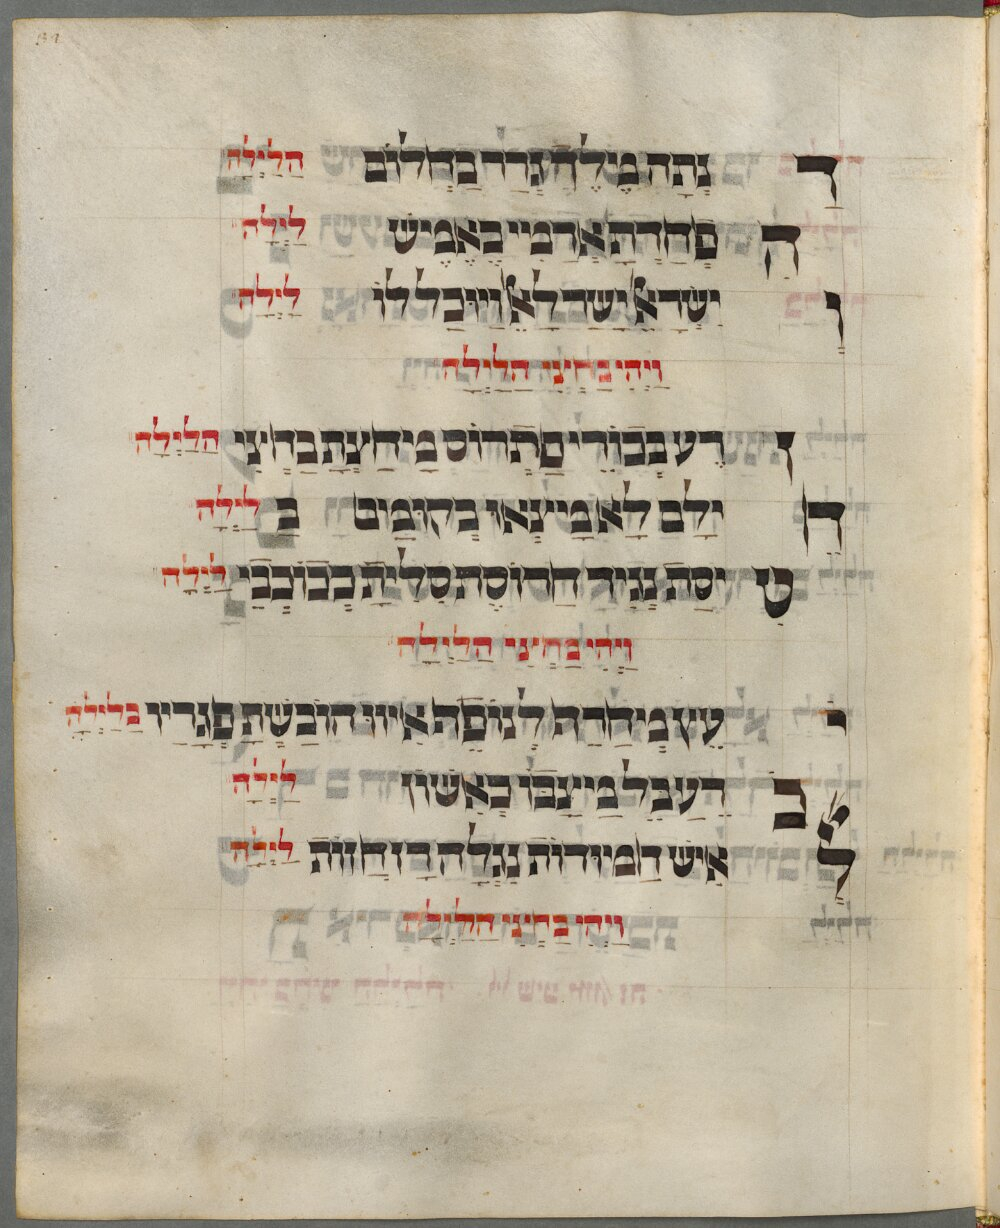 דנתה מלך גרר בחלום הלילה
הפחדת ארמי באמש לילה
וישראל ישר לאל ויוכל לו לילה
ויהי בחצי הלילה
זרע בכורי פתרוס מחצת בחצי הלילה
חילם לא מצאו בקומם ב לילה
טיסת נגיד חרוסת סלית בכוכבי לילה
ויהי בחצי הלילה
יעץ מחרף לנופף איווי הובשת פגריו בלילה
כרע בל מצבו באשון לילה
לאיש חמודות נגלה רז חזות לילה
ויהי בחצי הלילה